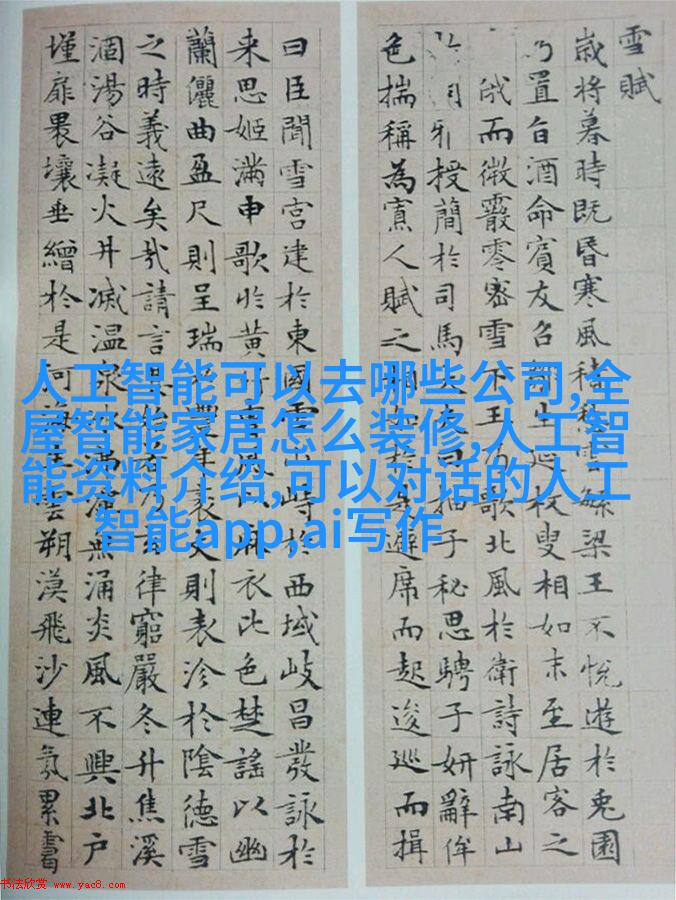 雪賦
歲将暮時既昏寒風積愁雲緐梁王不悅遊於兎園
乃置旨酒命賓友召鄒生延枚叟相如末至居客之
俄而微霰零密雪下王乃歌北風於衛詩詠南山
雅授簡於司馬大夫曰抽子秘思騁子妍辭侔
色揣稱為寡人賦之相如於是避席而起逡巡而揖
曰臣聞雪宮建於東國雪山峙於西域岐昌發詠於
来思姬滿申歌於黄竹曹風以麻衣比色楚謠以幽
蘭儷曲盈尺則呈瑞於豐年袤丈則表沴於陰德雪
之時義遠矣哉請言其始若乃玄律窮嚴冬升焦溪
涸湯谷凝火井滅温泉冰沸潭無涌炎風不興北户
墐扉裸壤垂繒於是河海生雲朔漠飛沙連氛累靄
人工智能可以去哪些公司,全
屋智能家居怎么装修,人工智
能资料介绍,可以对话的人工
智能app,ai写作
书法欣赏 www.yac8.com